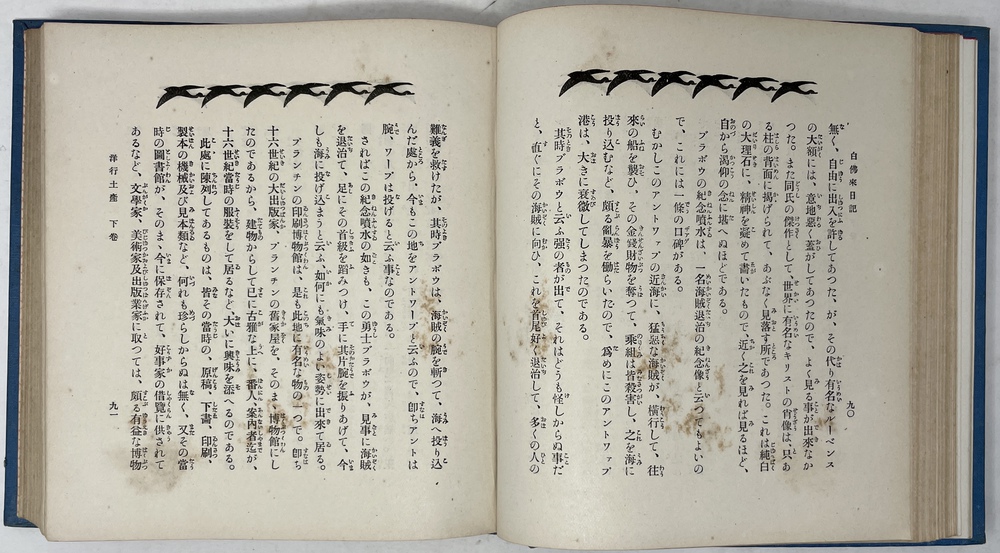 白佛來日記
九〇
無く、自由に出入を許してあつた、が、その代り有名なルーベンス
の大額には、意地惡く蓋がしてあつたので、よく見る事が出來なか
つた。また同氏の傑作として、世界に有名なキリストの肖像は、只あ
る柱の背面に揭げられて、あぶなく見落す所であつた。これは純白
の大理石に、精神を凝めて書いたもので、近く之を見れば見るほど、
自から渴仰の念に堪へぬほどである。
ブラボウの紀念噴水は、一名海賊退治の紀念像と云つてもよいの
で、これには一條の口碑がある。
むかしこのアントワァプの近海に、猛惡な海賊が、橫行して、往
來の船を襲ひ、その金錢財物を奪つて、乘組は皆殺害し、之を海に
投り込むなど、頗る亂暴を働らいたので、爲めにこのアントワァプ
港は、大きに衰微してしまつたのである。
其時ブラボウと云ふ强の者が出て、それはどうも怪しからぬ事だ
と、直ぐにその海賊に向ひ、これを首尾好く退治して、多くの人の
難義を救けたが、其時ブラボウは、海賊の腕を斬つて、海へ投り込
んだ處から、今もこの地をアントワープと云ふので、卽ちアントは
腕、ワープは投げると云ふ事なのである。
さればこの紀念噴水の如きも、この勇士ブラボウが、見事に海賊
を退治て、足にその首級を蹈みつけ、手に其片腕を振りあげて、今
しも海に投げ込まうと云ふ、如何にも氣味のよい姿勢に出來て居る。
プランチンの印刷博物館は、是も此地に有名な物の一つで。卽ち
十六世紀の大出版家、プランチンの舊家屋を、そのまゝ博物館にし
たのであるから、建物からして已に古雅な上に、番人、案內者迄が、
十六世紀當時の服裝をして居るなど、大いに興味を添へるのである。
此處に陳列してあるものは、皆その當時の、原稿、下畵、印刷、
製本の機械及び見本類など、何れも珍らしからぬは無く、又その當
時の圖書館が、そのまゝ今に保存されて、好事家の借覽に供されて
あるなど、文學家、美術家及出版業家に取つては、頗る有益な博物
洋行土產 下卷
九一